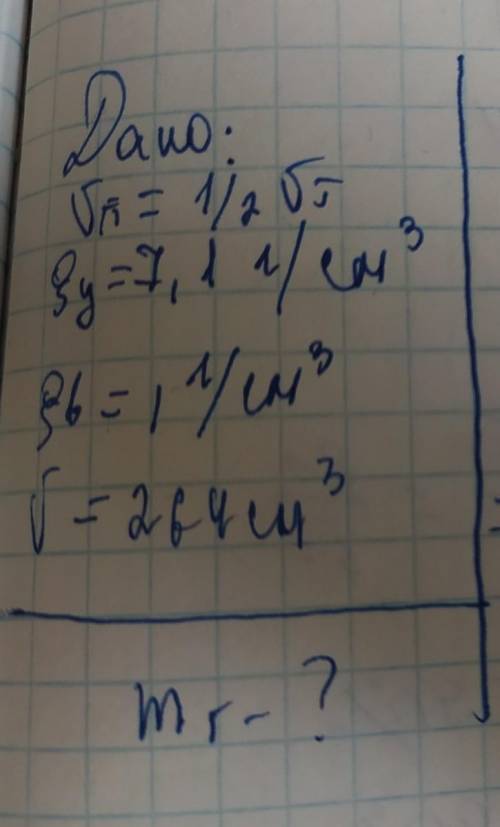 Дано:
Vп = 1/2 Vт
ρц = 7,1 г/см³
ρв = 1 г/см³
V = 264 см³
mг - ?